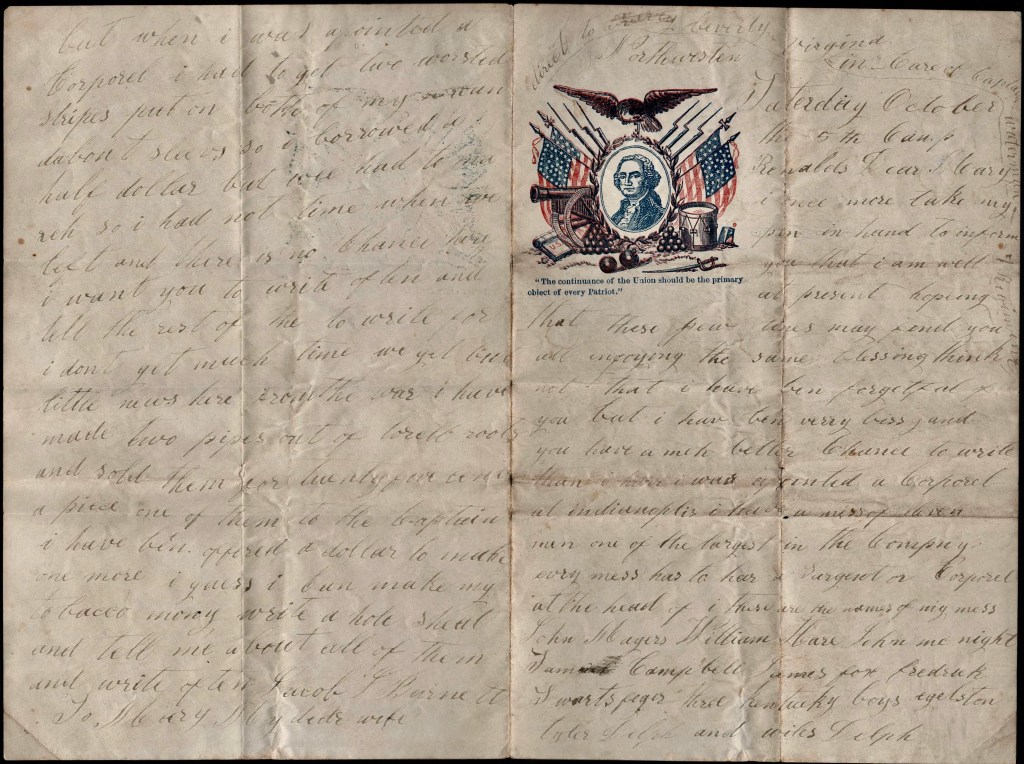 direct to Beverly
Northwesten Virginia
in Care of Captain
Saterday October
the 5th Camp
Renalds Dear Mary
i once more take my
pen in hand to inform
you that i am well
at present hoping
"The continuance of the Union should be the primary
object of every Patriot."
that these few lines may fend you
all injoying the same blessing think
not that i have ben forgetful of
you but i hav ben verry bissy and
you have a mch better Chance to write
than i have i was apointed a Corporel
at indianoplis i have a mess of
men one of the largest in the Compny
evry mess has to hav a Surgent or Corporel
at the head of i these are the names of my mess
John Mayers William Hare John mc night
Campbell James fox fredrick
Swartsfager three kentucky boys egelston
tyler Delph and wiles Delph
but when i was apointed a
Corporel i had to get two worsted
stripes put on both of my
slevs so i borrowed a
half dollar but wee had to
so i had not time when we
left and there is no Chance here
i want you to write often and
tell the rest of the to write for
i dont get much time we get but
little news here from the war i have
made two pipes out of loreb roots
and sold them for twentyfive cence
a piece one of them to the Captain
i have bin offered a dollar to make
one more i guess i can make my
tobacco mony write a hole sheat
and tell me about all of them
and write often Jacob S Barnett
To Mary My dear wife